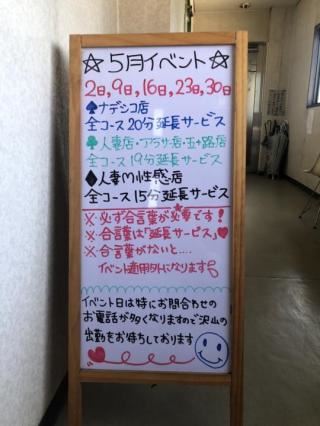 ☆5月イベント☆
2日,9日,16日,23日,30日
♠ナデシコ店
全コース20分延長サービス
♣人妻店・アラサー店・五十路店
全コース19分延長サービス
♦人妻M性感店
全コース15分延長サービス
※必ず合言葉が必要です!
※合言葉は「延長サービス」♥
※合言葉がないと…。
イベント適用外になります
イベント日は特にお問合わせの
お電話が多くなりますので沢山の
出勤をお待ちしております